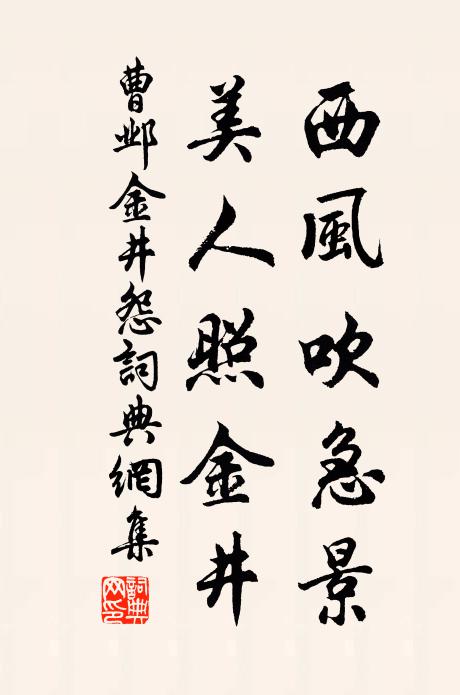 西風吹急景
美人照金井
曹邺金井怨詞典網集
詞典網印